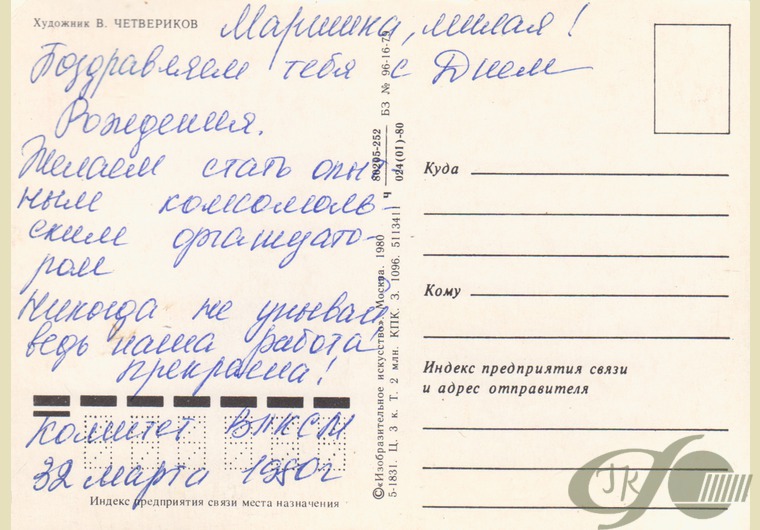 Художник В. ЧЕТВЕРИКОВ
Маришка, милая!
Поздравляем тебя с Днем
Рождения.
Желаем стать опыт-
ным комсомоль-
ским организато-
ром
Никогда не унывай
ведь наша работа
прекрасна!
Комитет ВЛКСМ
32 марта 1980г
Индекс предприятия связи места назначения
©«Изобразительное искусство». Москва. 1980
5-1831. Ц. 3 к. Т. 2 млн. КПК. З. 1096. 511341
Ч 80205-252
024(01)-80
БЗ № 96-16-79
Куда
Кому
Индекс предприятия связи
и адрес отправителя